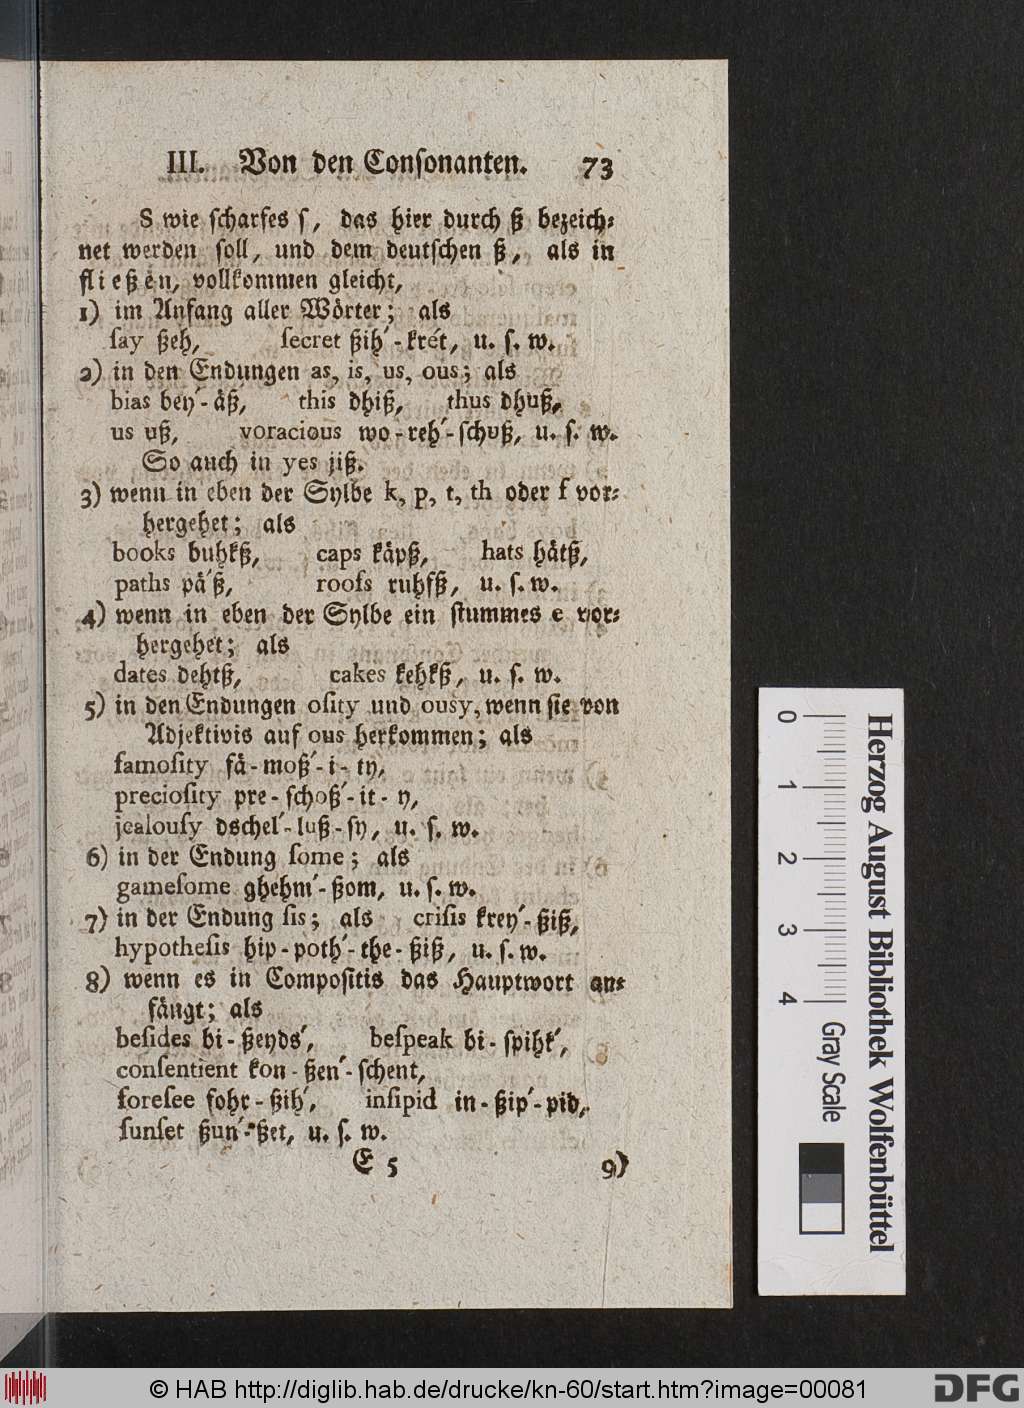 III. Von den Conſonanten. 73
S wie ſcharfes ſ, das hier durch ß bezeich⸗
net werden ſoll, und dem deutſchen ß, als in
fließen, vollkommen gleicht,
1) im Anfang aller Wörter; als
ſay ßeh, ſecret ßih´-krét, u. ſ. w.
2) in den Endungen as, is, us, ous; als
bias bey´-äß, this dhiß, thus dhuß,
us uß, voracious wo-reh´-ſchuß, u. ſ. w.
So auch in yes jiß.
3) wenn in eben der Sylbe k, p, t, th oder f vor⸗
hergehet; als
books buhkß, caps käpß, hats hätß,
paths pä´ß, roofs ruhfß, u. ſ. w.
4) wenn in eben der Sylbe ein ſtummes e vor⸗
hergehet; als
dates dehtß, cakes kehkß, u. ſ. w.
5) in den Endungen oſity und ouſy, wenn ſie von
Adjektivis auf ous herkommen; als
famoſity fä-moß´-i-ty,
precioſity pre-ſchoß´-it-y,
jealouſy dſchel´-luß-ſy, u. ſ. w.
6) in der Endung ſome; als
gameſome ghehm´-ßom, u. ſ. w.
7) in der Endung ſis; als criſis krey´-ßiß,
hypotheſis hip-poth´-the-ßiß, u. ſ. w.
8) wenn es in Compoſitis das Hauptwort an⸗
fängt; als
beſides bi-ßeyds´, beſpeak bi-ſpihk´,
conſentient kon-ßen´-ſchent,
foreſee fohr-ßih´, inſipid in-ßip´-pid,
ſunſet ßun´-ßet, u. ſ. w.
E 5 9)
0 1 2 3 4
Gray Scale
Herzog August Bibliothek Wolfenbüttel
© HAB http://diglib.hab.de/drucke/kn-60/start.htm?image=00081
DFG